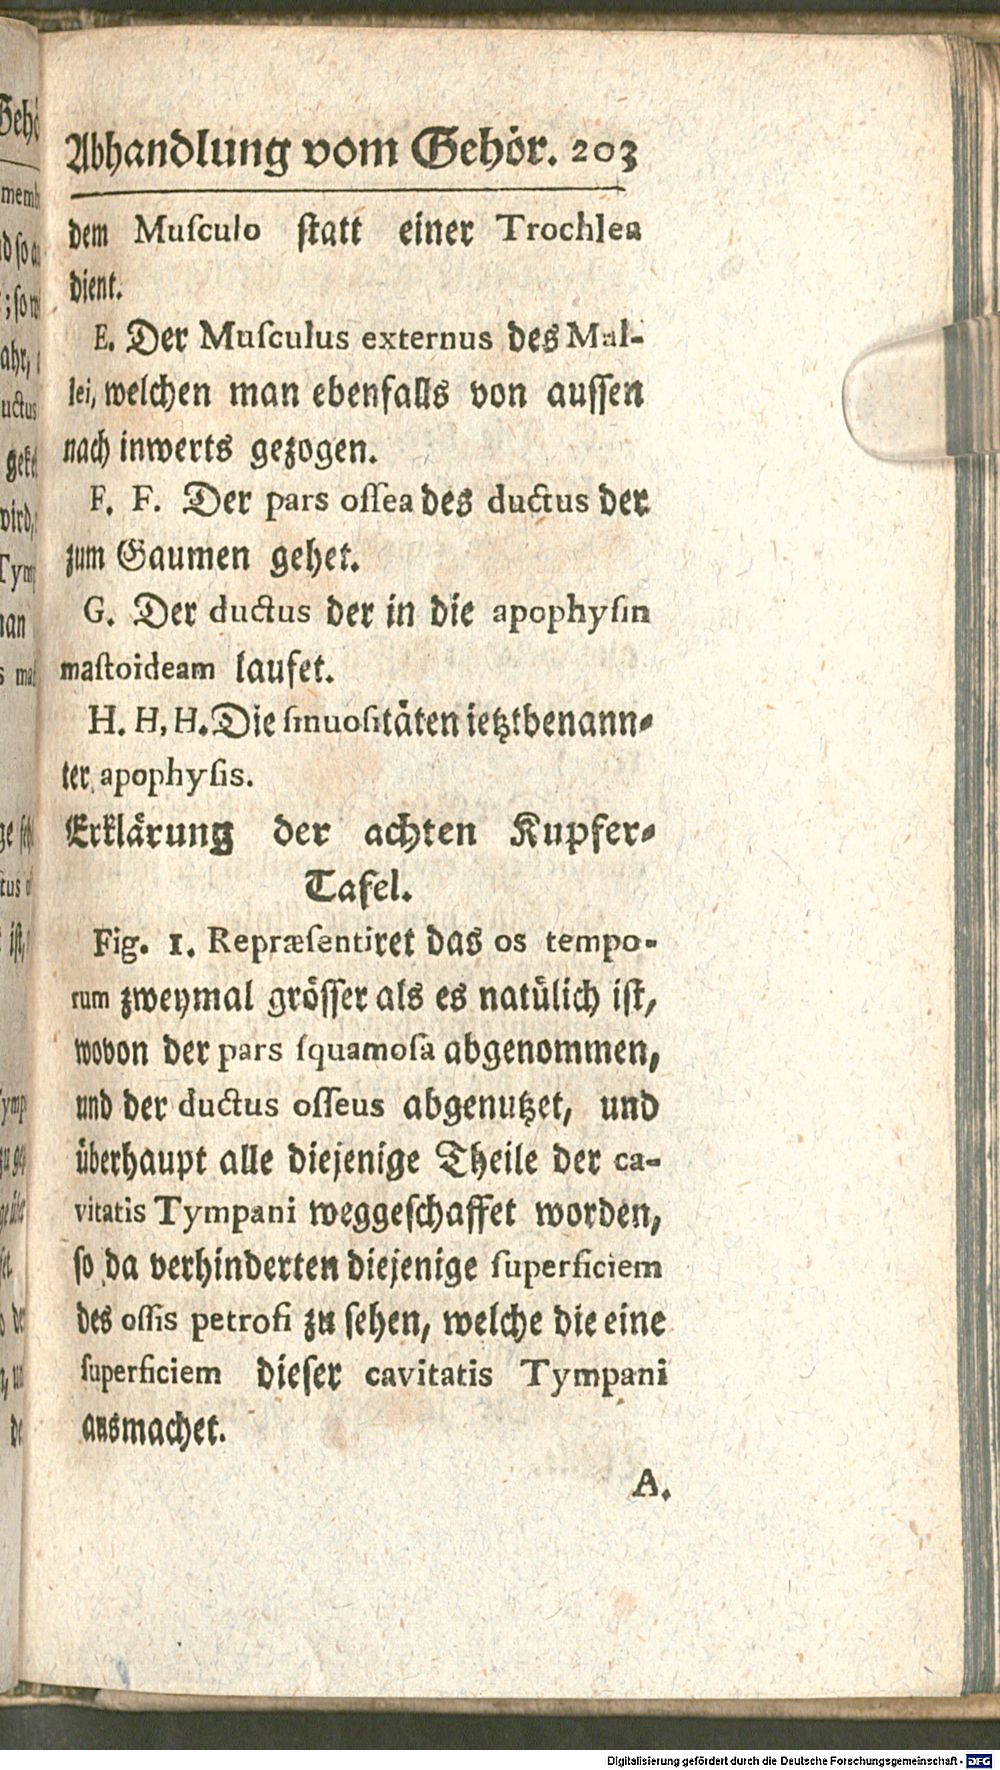 Abhandlung vom Gehör. 203
dem Muſculo ſtatt einer Trochlea
dient.
E. Der Muſculus externus des Mal-
lei, welchen man ebenfalls von auſſen
nach inwerts gezogen.
F. F. Der pars oſſea des ductus der
zum Gaumen gehet.
G. Der ductus der in die apophyſin
maſtoideam laufet.
H. H, H. Die ſinuoſitäten ietztbenann-
ter apophyſis.
Erklärung der achten Kupfer-
Tafel.
Fig. 1. Repræſentiret das os tempo-
rum zweymal gröſſer als es natülich iſt,
wovon der pars ſquamoſa abgenommen,
und der ductus oſſeus abgenutzet, und
überhaupt alle diejenige Theile der ca-
vitatis Tympani weggeſchaffet worden,
ſo da verhinderten diejenige ſuperficiem
des oſſis petroſi zu ſehen, welche die eine
ſuperficiem dieſer cavitatis Tympani
ausmachet.
A.
Digitalisierung gefördert durch die Deutsche Forschungsgemeinschaft - DFG